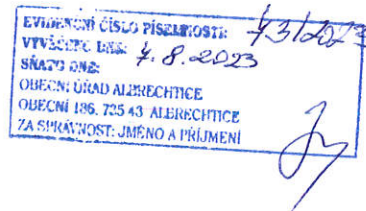 EVIDENČNÍ ČÍSLO PÍSEMNOSTI: 431/2023
VYVĚŠENO DNE: 4. 8. 2023
SŇATO DNE:
OBECNÍ ÚŘAD ALBRECHTICE
OBECNÍ 186, 735 43 ALBRECHTICE
ZA SPRÁVNOST: JMÉNO A PŘIJMENÍ